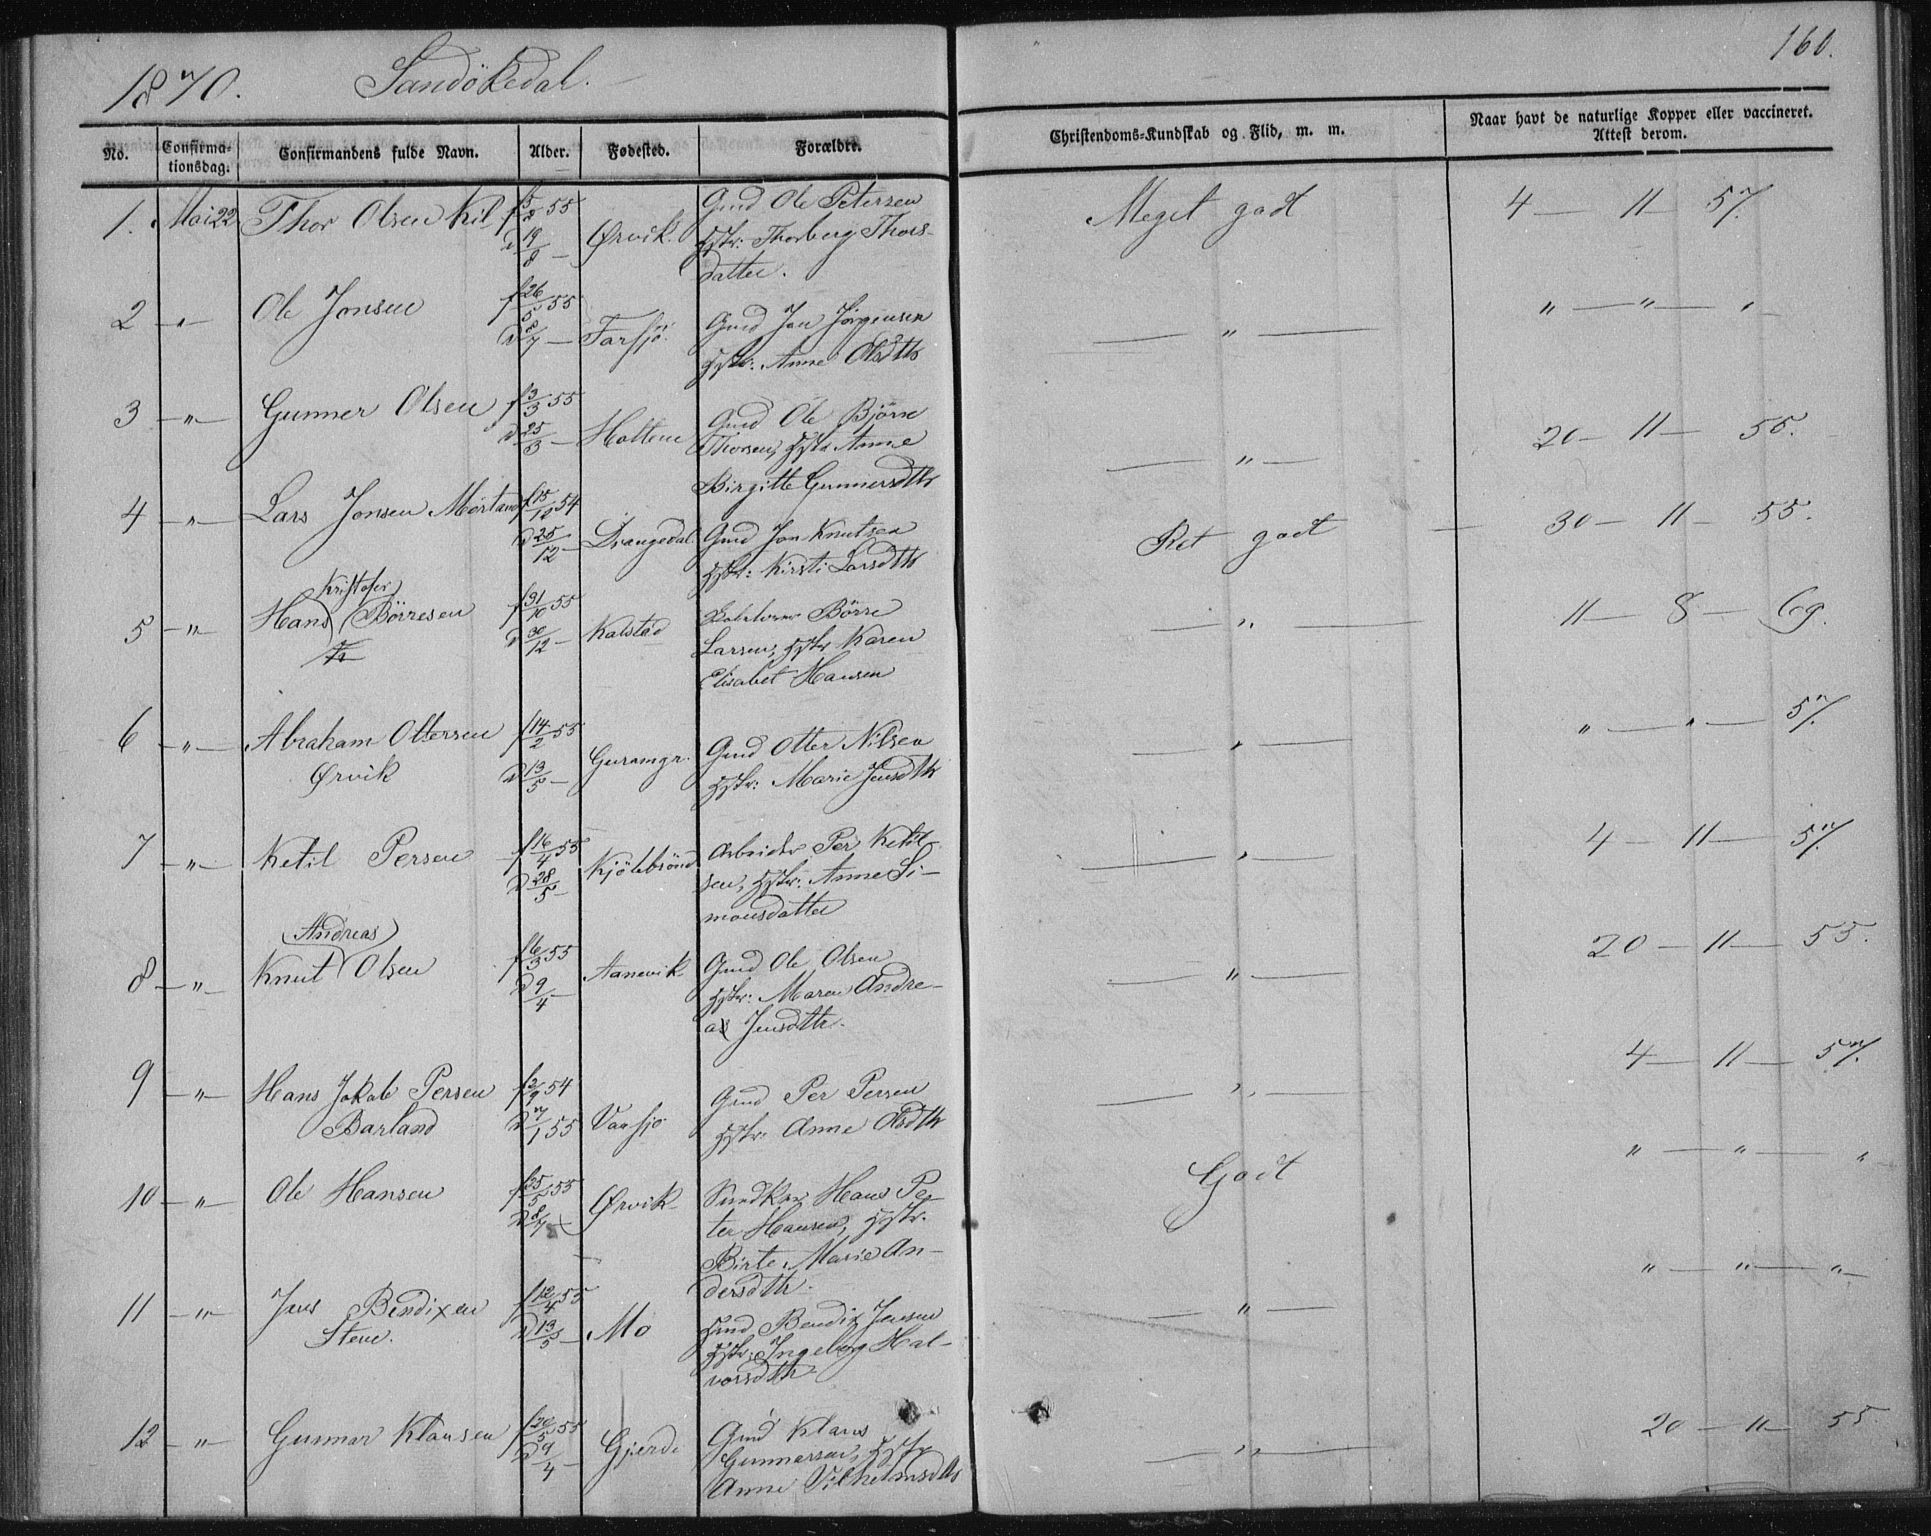 1870. Sandökedal. 160.
No. Confirma- Confirmandens fulde Navn. Alder. Fødested. Forældre. Christendoms-Kundskab og Flid, m. m. Naar havt de naturlige Kopper eller vaccineret.
tionsdag. Attest derom.
1. Mai 22 Thor Olsen Kil f 5/8 55 Ørvik. Gmd Ole Petersen Meget godt 4 — 11 — 57.
D 19/8 — Hstr: Thorberg Thors-
datter.
2 — " — Ole Jonsen f 26/5 55 Farsjö. Gmd Jon Jörgensen — " — " — " — "
D 8/7 — Hstr: Anne Olsdtr
3 — " — Gunner Olsen f 3/3 55 Holtene Gmd Ole Bjørn — " — 20 — 11 — 55.
D 25/3 — Thorsen, Hstr Anne
Birgitte Gunnersdtr
4 — " — Lars Jonsen Mørland f 15/10 54 Drangedal Gmd Jon Knutsen Ret godt — 30 — 11 — 55.
D 25/12 — Hstr: Kirsti Larsdtr
Kristofer
5 — " — Hans Börresen f 31/10 55 Kalstad Börre — " — 11 — 8 — 69.
D 30/12 — Larsen, Hstr Karen
Elisabet Hansen
6 — " — Abraham Ottersen f 14/2 55 Guramgr. Gmd Otter Nilsen — " — " — " — 57.
Ørvik D 13/5 — Hstr: Marie Jensdtr
7 — " — Ketil Persen f 16/4 55 Kjölebrönd Arbeider Per Ketil- — " — 4 — 11 — 57.
D 28/5 — sen, Hstr: Anne Si-
monsdatter
Andreas
8 — " — Knut Olsen f 6/3 55 Aanevik Gmd Ole Olsen — " — 20 — 11 — 55.
D 9/4 — Hstr: Maren Andre-
as Jensdtr.
9 — " — Hans Jakob Persen f 2/9 54 Vaasjö Gmd Per Persen — " — 4 — 11 — 57.
Barland D 7/1 55 Hstr: Anne Olsdtr
10 — " — Ole Hansen f 25/5 55 Ørvik Hans Pe- Godt " — " — "
D 8/7 — ter Hansen, Hstr.
Birte Marie An-
dersdtr.
11 — " — Jens Bendixen f 12/4 55 Mo Gmd Bendix Jensen — " — " — " — "
Stene. D 13/5 — Hstr: Ingeborg Hal-
vorsdtr
12 — " — Gunnar Klausen f 20/5 55 Gjerde Gmd Klaus — " — 20 — 11 — 55
D 9/4 — Gunnarsen, Hstr
Anne Vilhelmsdtr